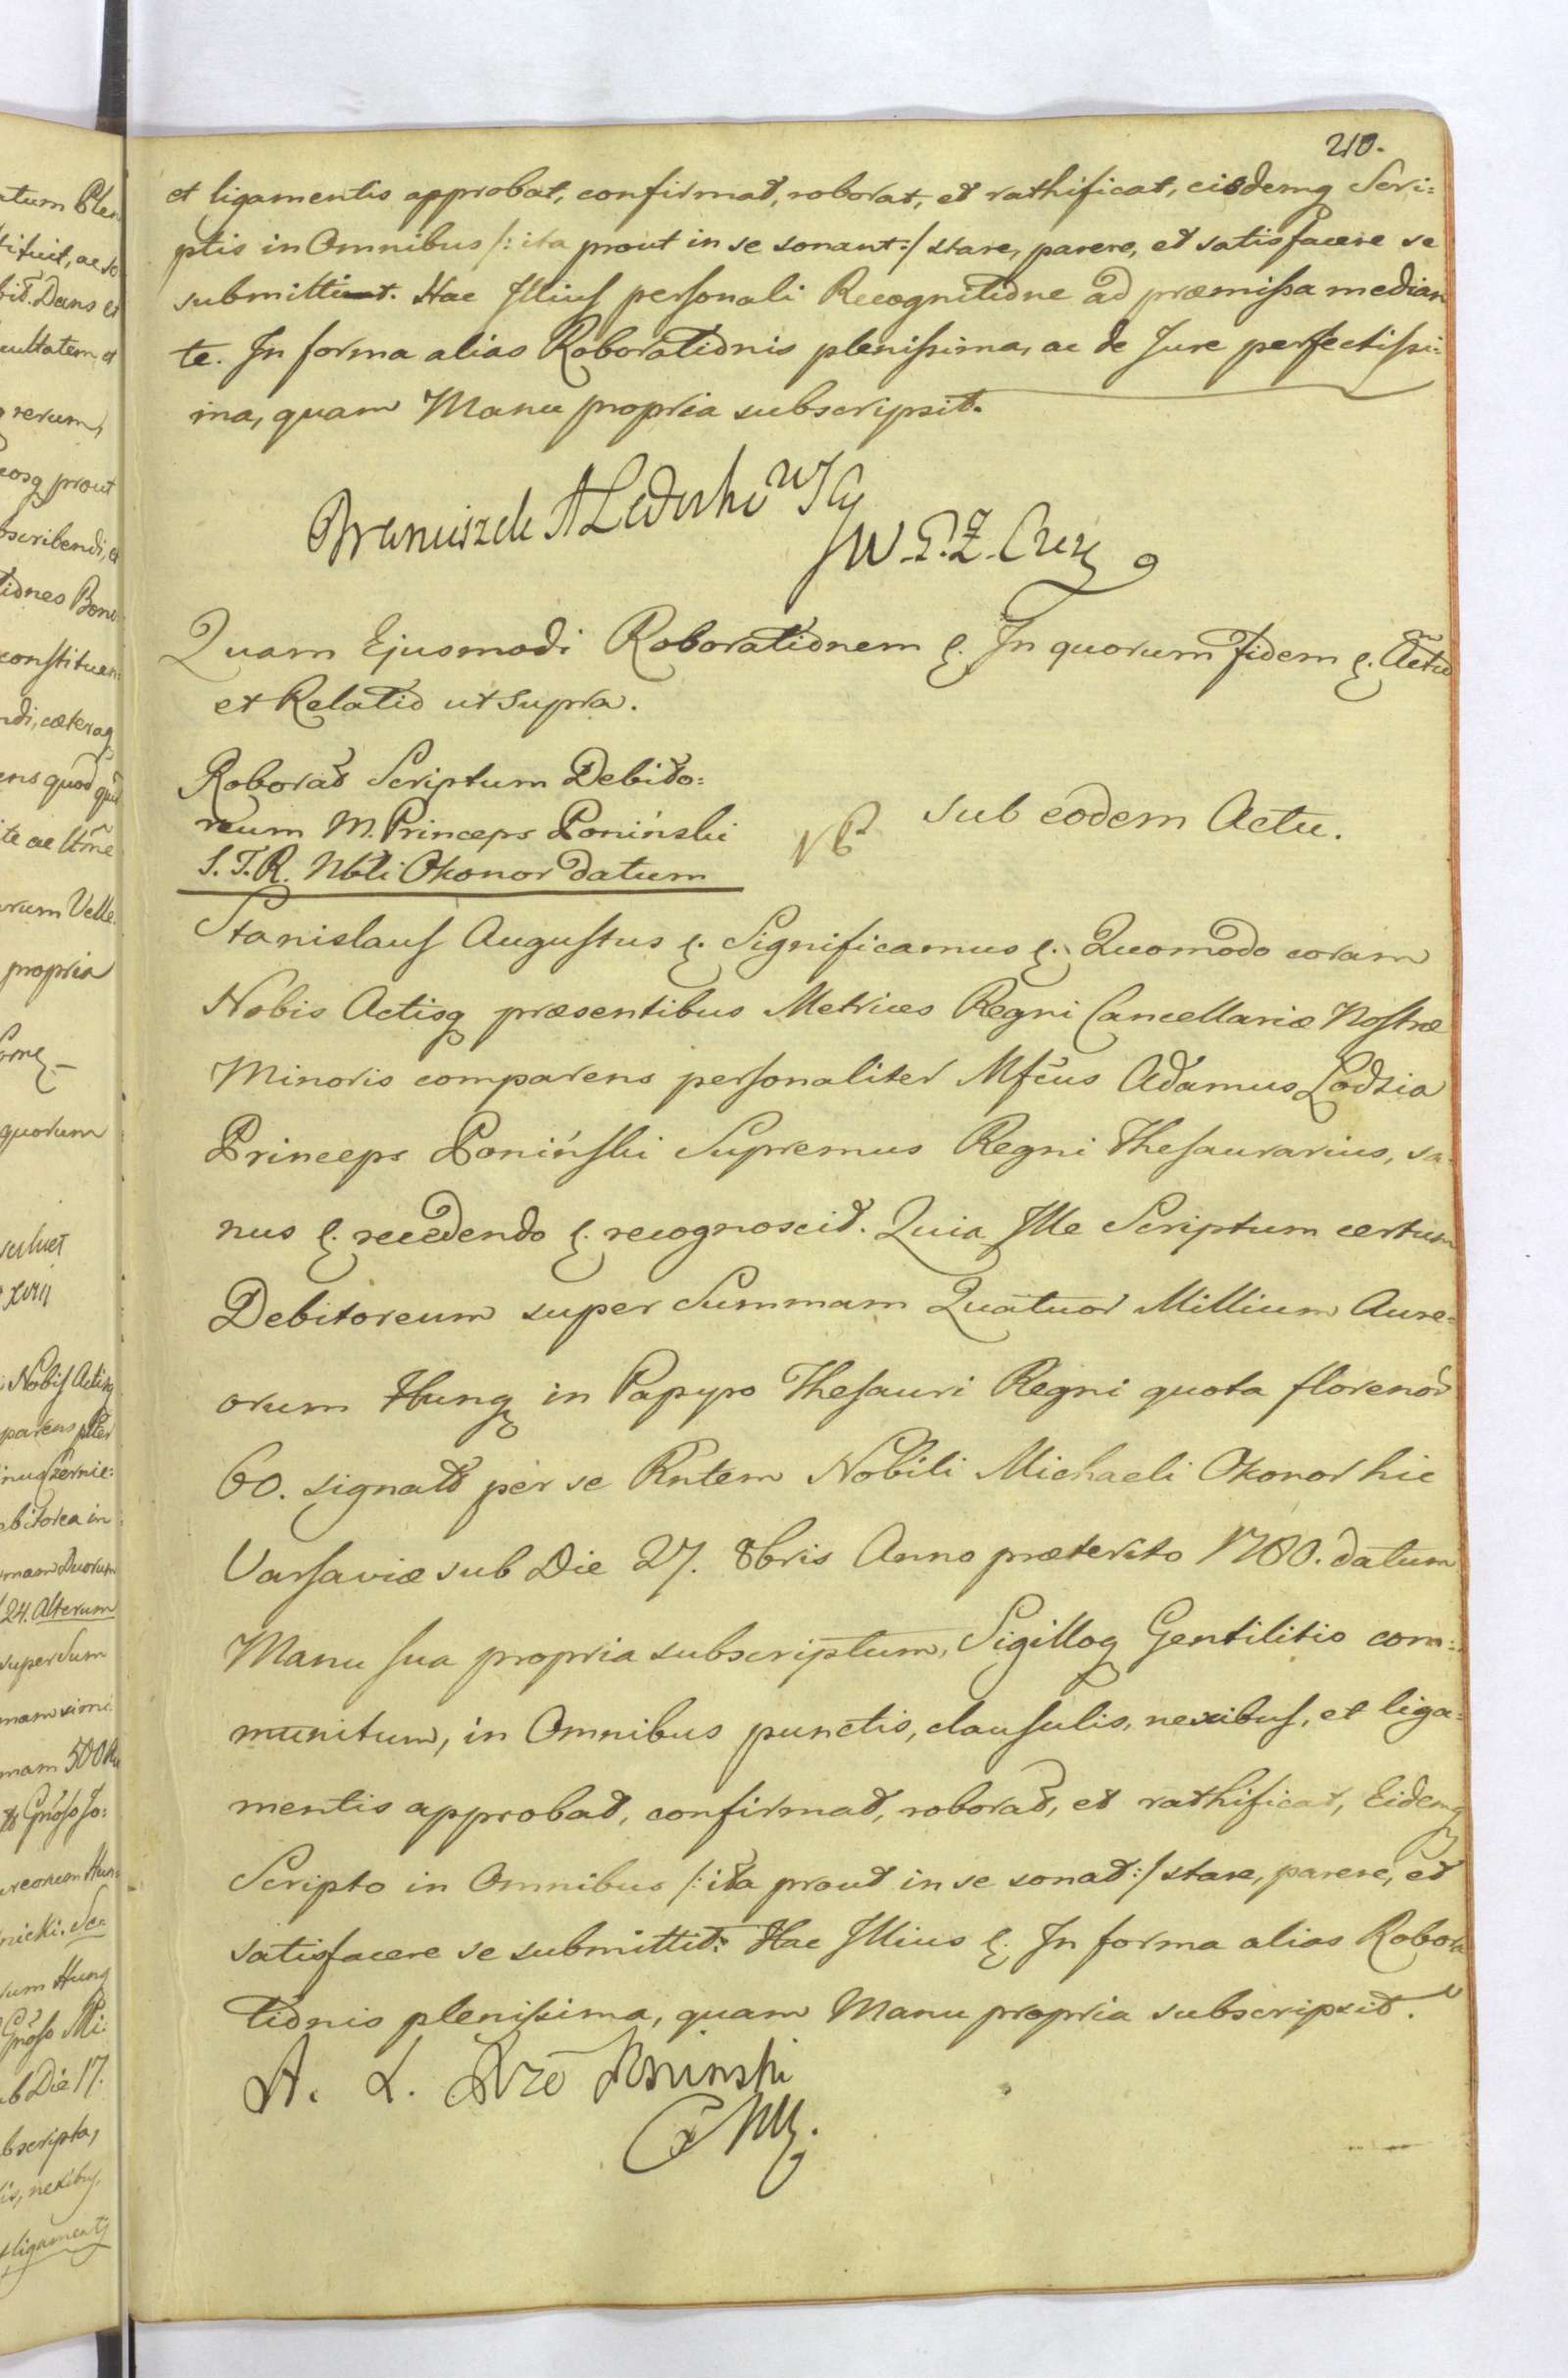 210.
et ligamentis approbat, confirmat, roborat, et rathificat, eisdemq Scri:
ptis in Omnibus /: ita prout in se sonant :/ stare, parere, et satisfacere se
submittit. Hac Illius personali Recognitione ad præmissa median
te. In forma alias Roborationis plenissima, ac de Jure perfectissi:
ma, quam Manu propria subscripsit.
Quam Ejusmodi Roborationem &. In quorum fidem &. Actũ
et Relatio ut supra.
Roborat Scriptum Debito:
reum M. Princeps Poniński
S. T. R. Nbli Okonor datum
sub eodem Actu.
Stanislaus Augustus &. Significamus &. Quomodo coram
Nobis Actisq præsentibus Metrices Regni Cancellariæ Nostræ
Minoris comparens personaliter Mfcus Adamus Lodzia
Princeps Poniński Supremus Regni Thesaurarius, sa:
nus &. recedendo &. recognoscit. Quia Ille Scriptum certum
Debitoreum super Summam Quatuor Millium Aure:
orum Hung in Papyro Thesauri Regni quota florenor
60. signato per se Rntem Nobili Michaeli Okonor hic
Varsaviæ sub Die 27. 8bris Anno præterito 1780. datum
Manu sua propria subscriptum, Sigilloq Gentilitio com:
munitum, in Omnibus punctis, clausulis, nexibus, et liga:
mentis approbat, confirmat, roborat, et rathificat, Eidemq
Scripto in Omnibus /: ita prout in se sonat :/ stare, parere, et
satisfacere se submittit: Hac Illius &. In forma alias Robora
tionis plenissima, quam Manu propria subscripsit.
A. L. Poninski